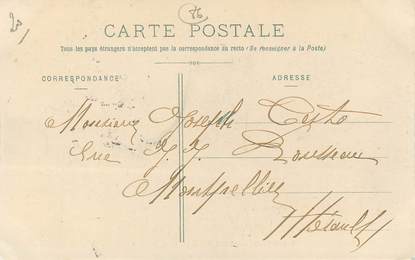 CARTE POSTALE
Tous les pays étrangers n'acceptent pas la correspondance au recto (Se renseigner à la Poste)
CORRESPONDANCE
ADRESSE
Monsieur Joseph
rue J. J. Rousseau
Montpellier
Hérault